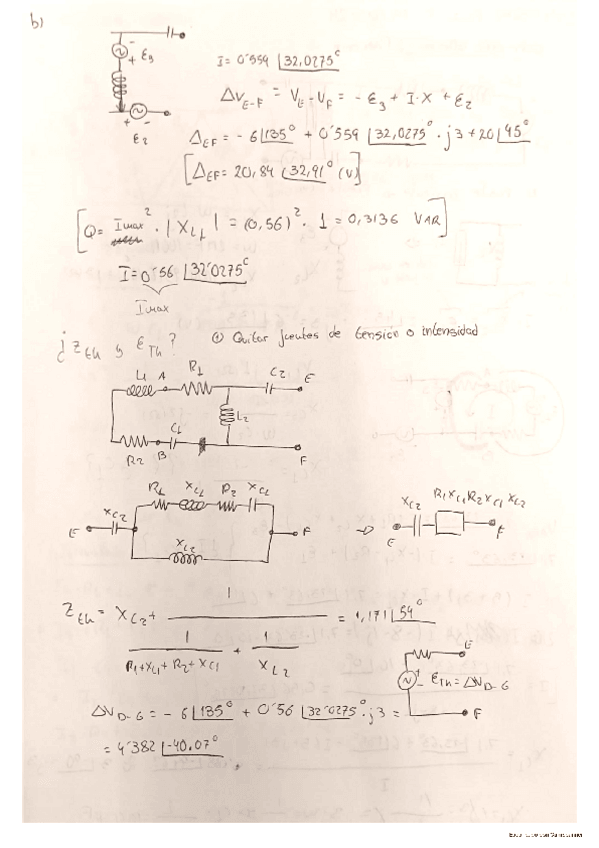 b)
- + ε3
I = 0'559 |32,0275°
ΔV E-F = VE - VF = - ε3 + I·X + ε2
+ - ε2
ΔEF = - 6|135° + 0'559 |32,0275° · j3 + 20|45°
[ΔEF = 20,84 |32,91° (V)]
[Q = Imax² · |XL1| = (0,56)² · 1 = 0,3136 VAR]
I = 0'56 |32'0275°
Imax
¿Zth y εTh? ① Quitar fuentes de tensión o intensidad
L1 A R1 C2 E
L2
R2 B C1 F
R1 XL1 R2 XC1
E XC2 F
XL2
XC2 R1 XL1 R2 XC1 XL2
E F
Zth = XC2 + 1 / (1/(R1+XL1+R2+XC1) + 1/XL2) = 1,171 |59°
E
+ - εTh = ΔVD-G
F
ΔVD-G = - 6|135° + 0'56 |32'0275° · j3 =
= 4'382 |-40.07°